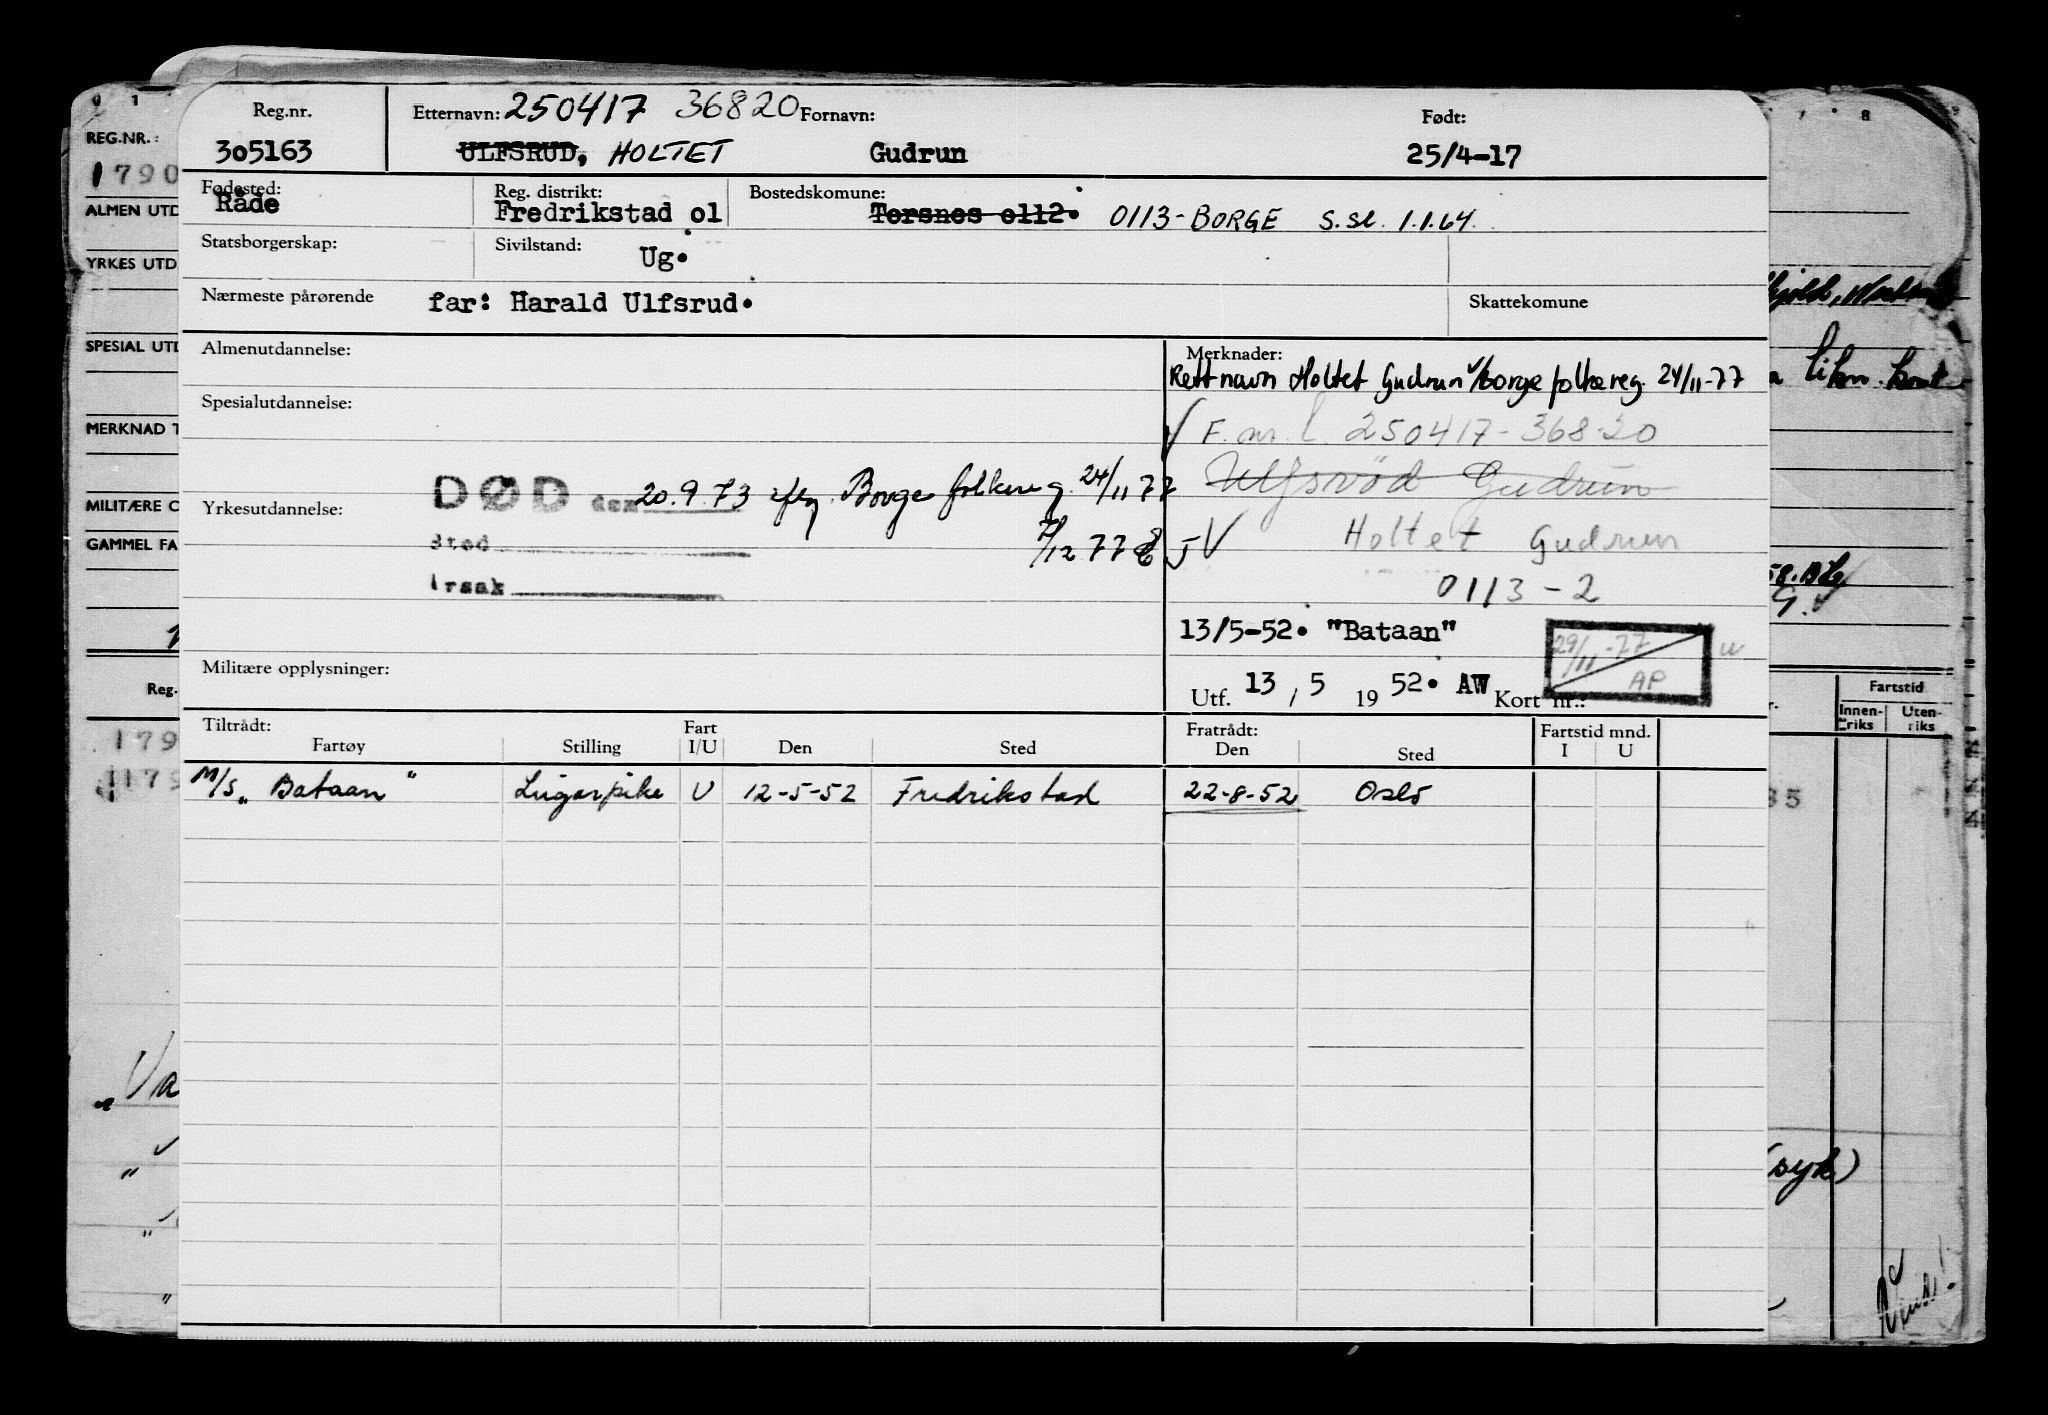 Reg.nr. Etternavn: 250417 36820 Fornavn: Født:
305163 ULFSRUD, HOLTET Gudrun 25/4-17
Fødested: Reg. distrikt: Bostedskomune:
Råde Fredrikstad 01 Torsnes 0112. 0113-BORGE S.sl. 1.1.64.
Statsborgerskap: Sivilstand: Ug.
Nærmeste pårørende far: Harald Ulfsrud. Skattekomune
Almenutdannelse: Merknader:
Rett navn Holtet Gudrun Borge folkereg. 24/11-77
Spesialutdannelse:
F.nr. 250417-36820
DØD den 20.9.73 Borge folkereg. 24/11 77
Ulfsrød Gudrun
Yrkesutdannelse:
Sted 7/12 77
Holtet Gudrun
Årsak
0113-2
13/5-52. "Bataan"
29/11-77
AP
Militære opplysninger:
Utf. 13 / 5 19 52. AW Kort nr.:
Tiltrådt: Fart Fratrådt: Fartstid mnd.
Fartøy Stilling I/U Den Sted Den Sted I U
M/S „Bataan" Lugarpike U 12-5-52 Fredrikstad 22-8-52 Oslo
REG.NR.:
1790
ALMEN UTD
YRKES UTD
SPESIAL UTD
MERKNAD T
MILITÆRE O
GAMMEL FA
Reg.
179
179
„Va
likn. kont
58.
Fartstid
Innen-
riks
Uten-
riks
35
(syk)